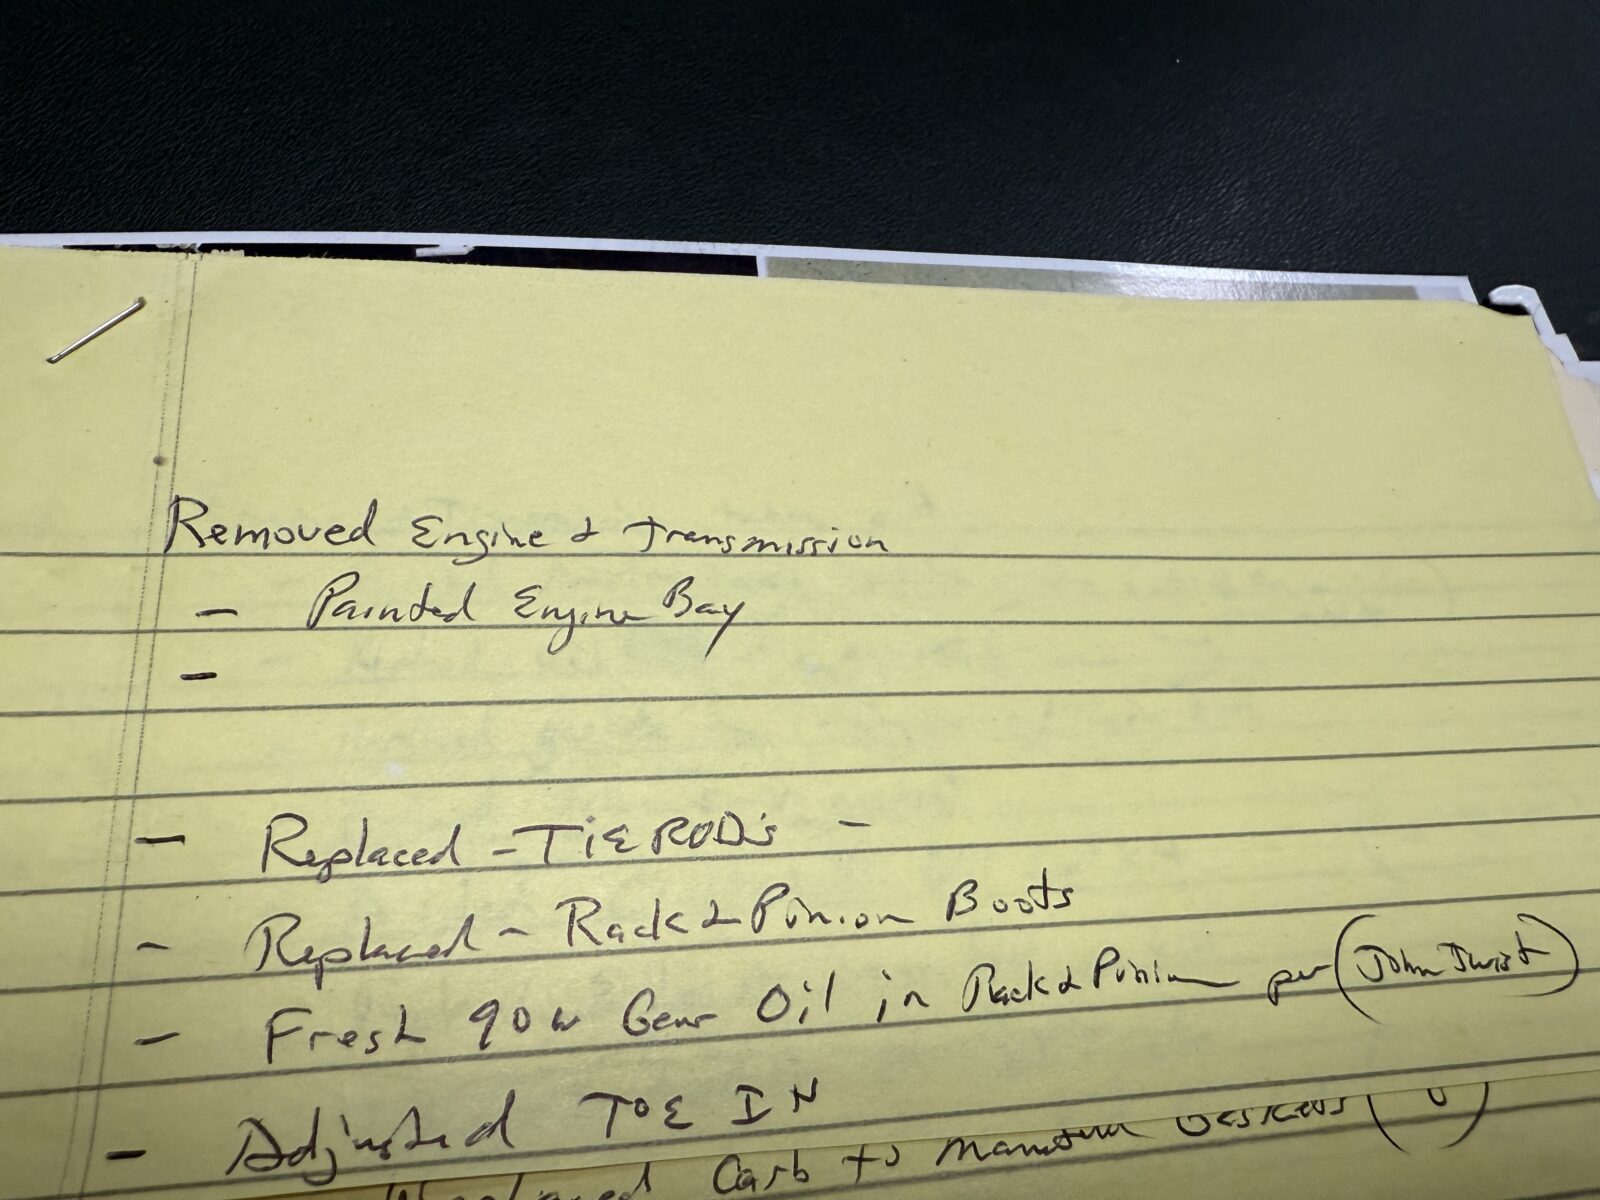 Removed Engine & Transmission
- Painted Engine Bay
-
- Replaced - TIE ROD's -
- Replaced - Rack & Pinion Boots
- Fresh 90w Gear Oil in Rack & Pinion per (John Twist)
- Adjusted TOE IN
Replaced Carb to Manifold Gaskets (